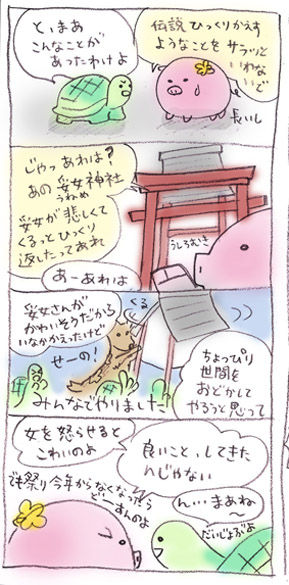 と、まあ
こんなことが
あったわけよ
伝説ひっくりかえす
ようなことを サラッと
いわ
ないで
長いし
じゃっ あれは?
あの 采女神社
うねめ
采女が 悲しくて
くるっと ひっくり
返したって あれ
うしろむき
あーあれは
采女さんが
かわいそうだから
せーの!
くる
みんなでやりました
ちょっぴり
世間を
おどかして
やろうと思って
女を怒らせると
こわいのよ
良いこと、してきた
んじゃない
でも祭り今年からなくなったら
どーすんのよ
ん…まあね
〜
だいじょぶよ